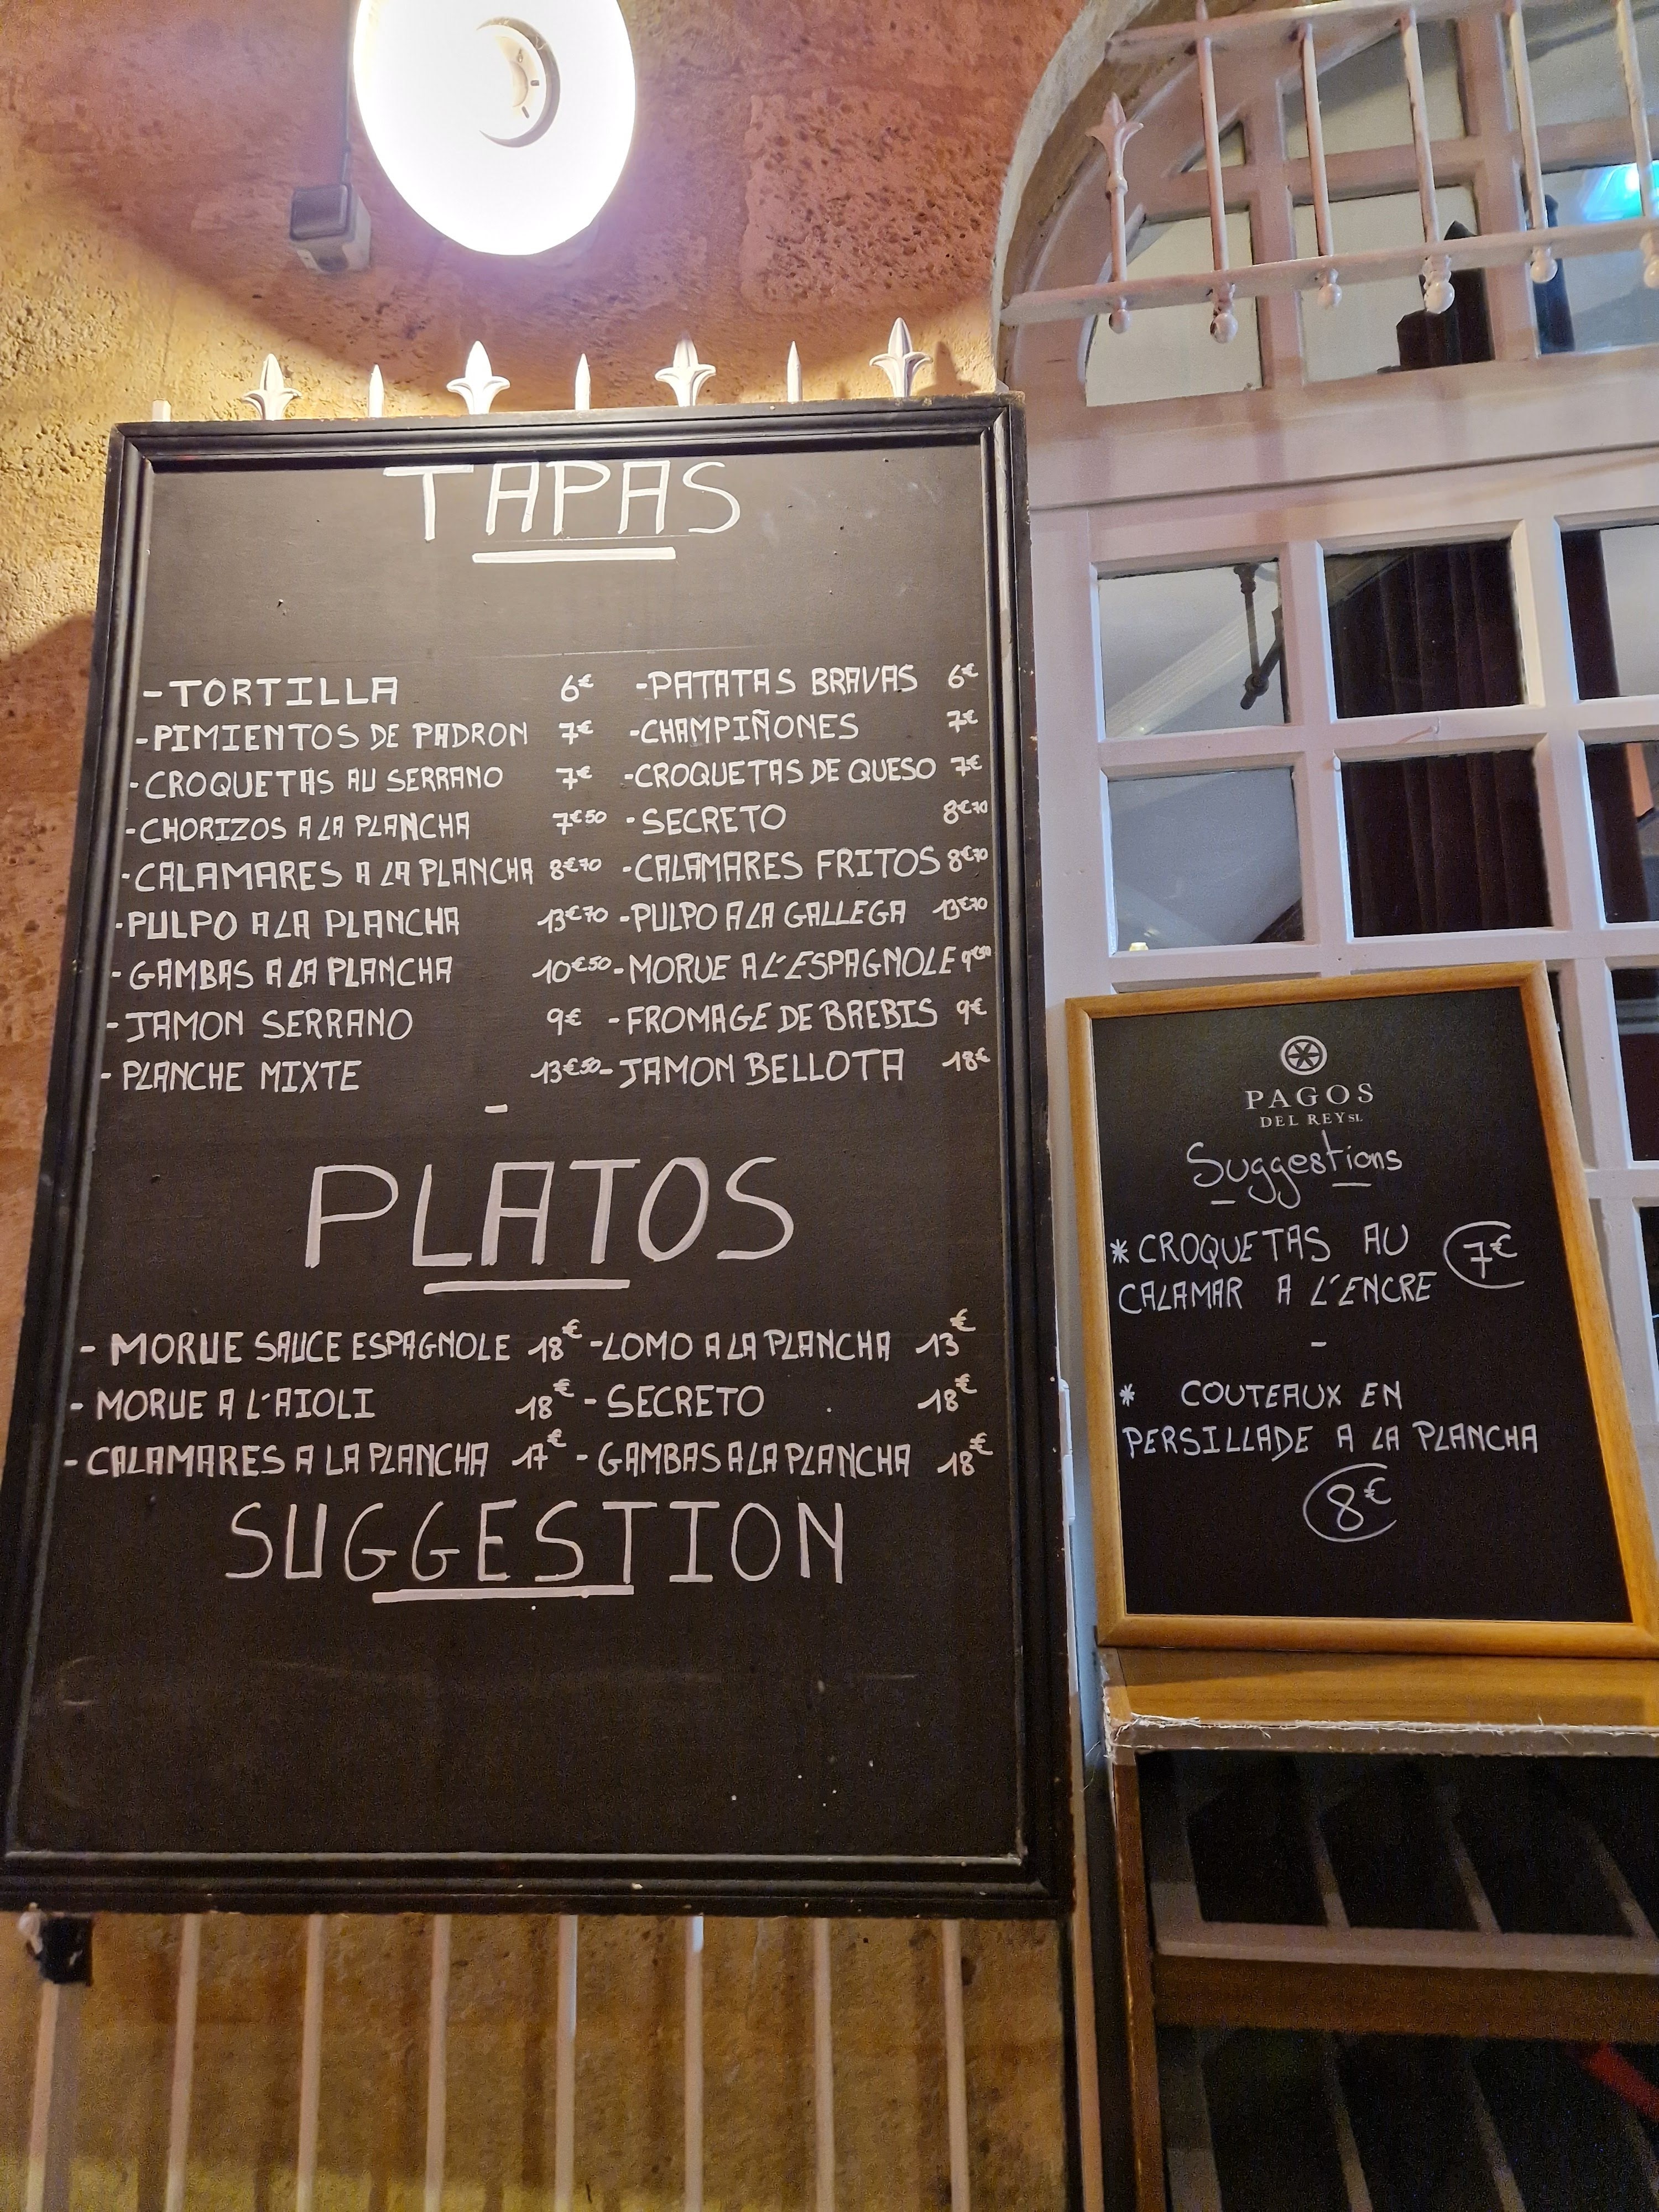 TAPAS
-TORTILLA 6€ -PATATAS BRAVAS 6€
-PIMIENTOS DE PADRON 7€ -CHAMPIÑONES 7€
-CROQUETAS AU SERRANO 7€ -CROQUETAS DE QUESO 7€
-CHORIZOS A LA PLANCHA 7€50 -SECRETO 8€70
-CALAMARES A LA PLANCHA 8€70 -CALAMARES FRITOS 8€70
-PULPO A LA PLANCHA 13€70 -PULPO A LA GALLEGA 13€70
-GAMBAS A LA PLANCHA 10€50 -MORUE A L'ESPAGNOLE
-JAMON SERRANO 9€ -FROMAGE DE BREBIS 9€
-PLANCHE MIXTE 13€50 -JAMON BELLOTA 18€
-
PLATOS
-MORUE SAUCE ESPAGNOLE 18€ -LOMO A LA PLANCHA 13€
-MORUE A L'AIOLI 18€ -SECRETO 18€
-CALAMARES A LA PLANCHA 17€ -GAMBAS A LA PLANCHA 18€
SUGGESTION
PAGOS
DEL REY SL
Suggestions
*CROQUETAS AU 7€
CALAMAR A L'ENCRE
-
* COUTEAUX EN
PERSILLADE A LA PLANCHA
8€